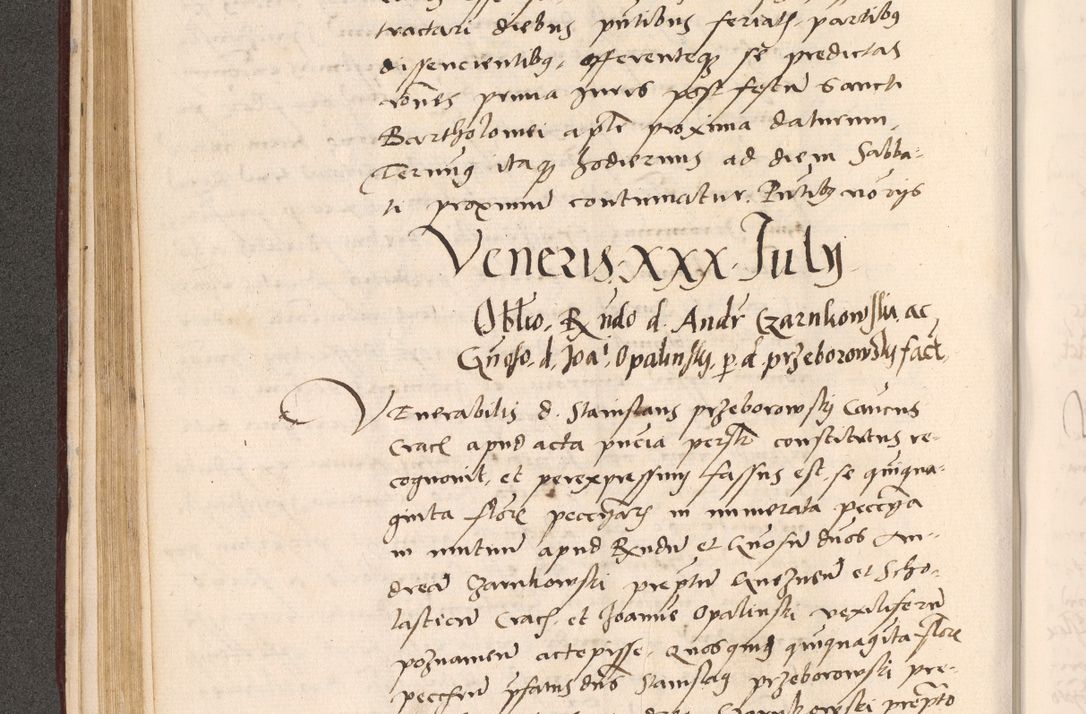 tractari diebus pntibus feriatis partibus
dissencientibus, offerenteque se predictas
rones prima Juris post festum Sancti
Bartholomei apli proxima daturum
Terminus itaque hodiernus ad diem Sabba-
ti proximum continuatur. Pntibus
Veneris XXX July
Obltio Rndo d. Andr Czarnkowski ac
Gnoso d. Joai Opalinsky p d przeborowsky fact
VEnerabilis d. Stanislaus przeborowsky Cancus
Crac apud acta pncia persr constitutus re-
cognovit, et perexpressum fassus est, se quinqua-
ginta flore peccyar in numerata peccya
in mutuum apud Rndu et Gnosu dnos An-
dream Czarnkowski preptu Gneznen et Scho-
lasticu Crac et Joanne Opalinski vexiliferu
poznanien accepisse. Quosquid quinquagita flore
peccyru pfatus dns Stanislaus przeborowski pre-
Czarnkowski prepto